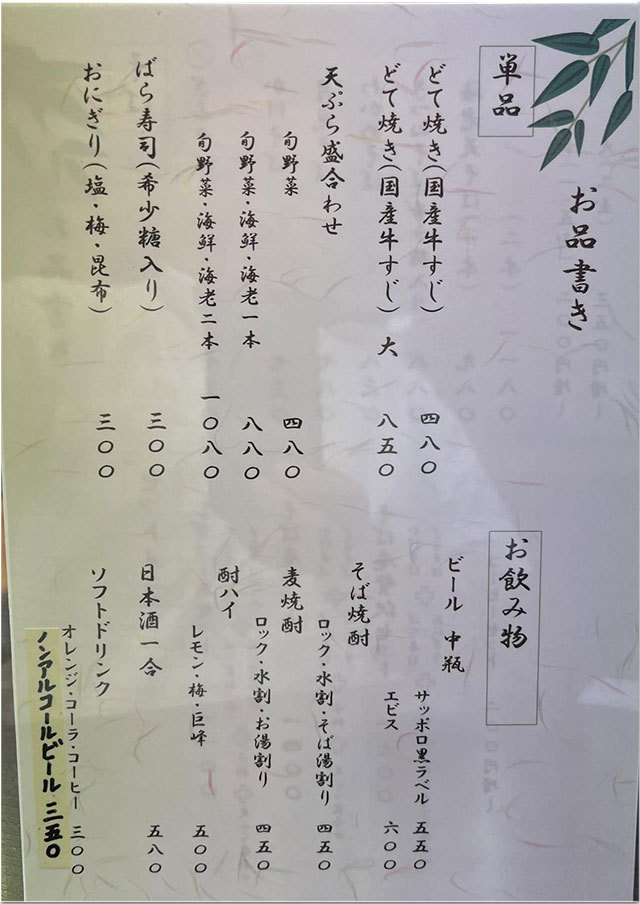 お品書き
単品
どて焼き(国産牛すじ) 四八〇
どて焼き(国産牛すじ) 大 八五〇
天ぷら盛合わせ
旬野菜 四八〇
旬野菜・海鮮・海老一本 八八〇
旬野菜・海鮮・海老二本 一〇八〇
ばら寿司(希少糖入り) 三〇〇
おにぎり(塩・梅・昆布) 三〇〇
お飲み物
ビール 中瓶
サッポロ黒ラベル 五五〇
エビス 六〇〇
そば焼酎
ロック・水割・そば湯割り 四五〇
麦焼酎
ロック・水割・お湯割り 四五〇
酎ハイ
レモン・梅・巨峰 五〇〇
日本酒一合 五八〇
ソフトドリンク
オレンジ・コーラ・コーヒー 三〇〇
ノンアルコールビール 三五〇